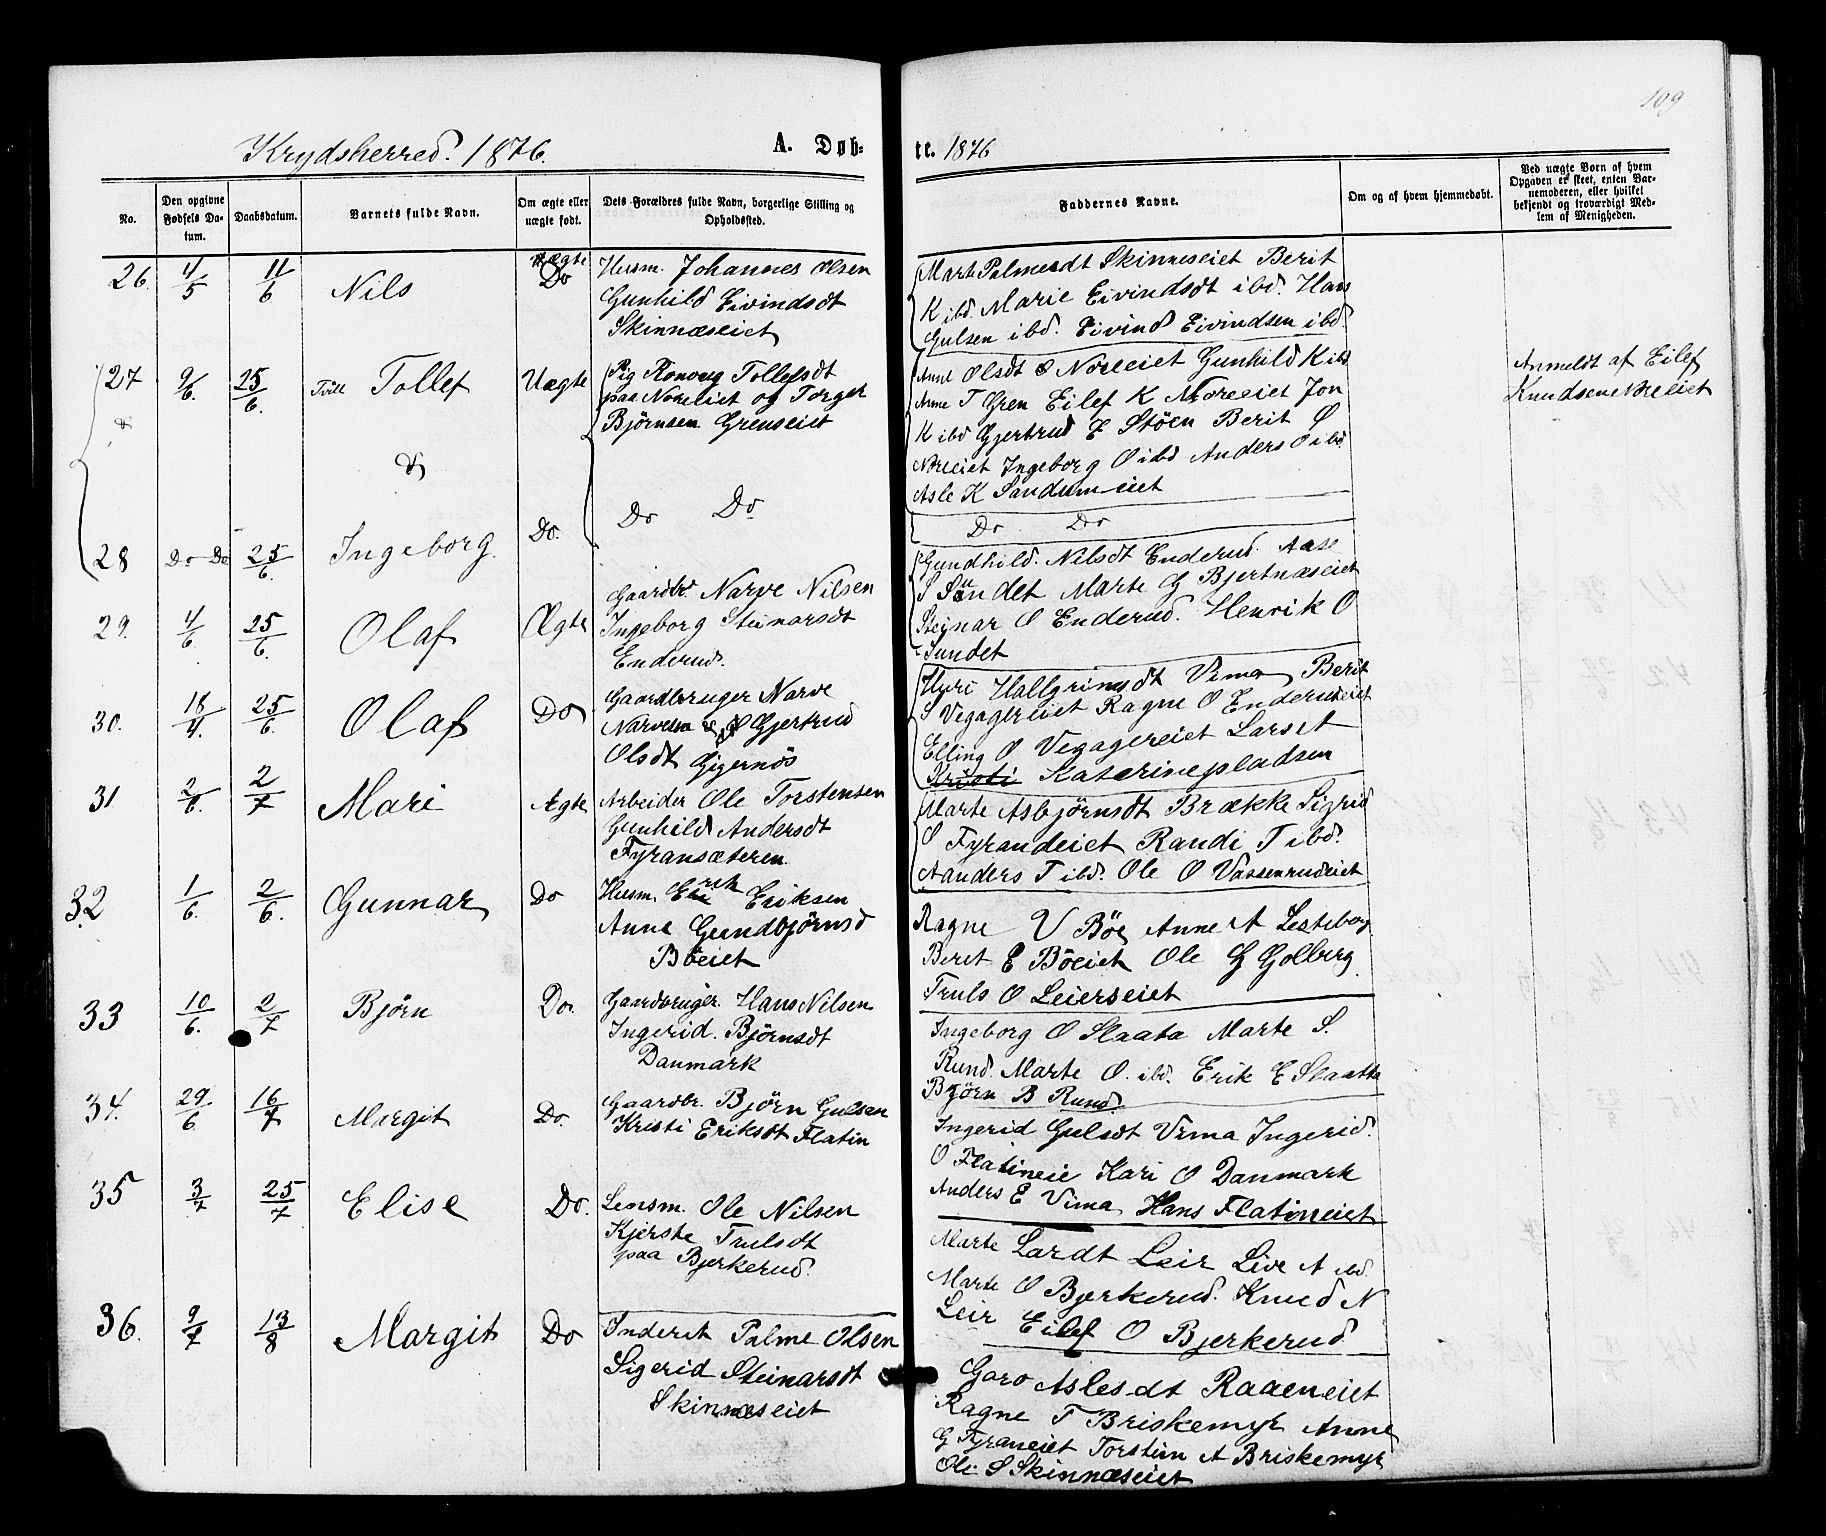 109
Krydsherred. 1876.
A. Døb-
te. 1876
No.
Den opgivne Fødsels Datum.
Daabsdatum.
Barnets fulde Navn.
Om ægte eller uægte født.
Dets Forældres fulde Navn, borgerlige Stilling og Opholdssted.
Faddernes Navne.
Om og af hvem hjemmedøbt.
Ved uægte Børn af hvem Opgaven er skeet, enten Barnemoderen, eller hvilket bekjendt og troværdigt Medlem af Menigheden.
26. 4/5 11/6 Nils Ægte Do
Husm. Johannes Olsen
Gunhild Eivindsdt
Skinnæseiet
Marte Palmesdt Skinneseiet Berit
K ibd. Marie Eivindsdt ibd. Hans
Gulsen ibd. Eivind Eivindsen ibd.
27 9/6. 25/6. Tvill Tollef Uægte
Pig Ronoug Tollefsdt
paa Noreeiet og Torger
Bjørnsen Grenseiet
Anne Olsdt Noreeiet Gunhild K ibd
Anne T Gren Eilef K Noreeiet Jon
K ibd Gjertrud E Støen Berit O
Noreeiet Ingeborg O ibd Anders O ibd
Asle K Sandumeiet
Anmeldt af Eilef
Knudsen Noreeiet
&
&
28 Do Do 25/6. Ingeborg. Do.
Do Do
Do Do
29. 4/6. 25/6. Olaf Ægte
Gaardbr. Narve Nilsen
Ingeborg Steinarsdt
Enderud.
Gundhild. Nilsdt Enderud. Aase
S Sundet Marte G Bjertnæseiet
Steinar O Enderud. Henrik O
Sundet
30. 18/4. 25/6. Olaf Do
Gaardbruger Narve
Narvesen & Gjertrud
Olsdt Gigernös
Hallgrimsdt Vema Berit
S Vegagereiet Ragne O Enderudeiet
Elling O Vegagereiet Lars T
Kristi Katrinepladsen
31 2/6. 2/7 Mari Ægte
Arbeider Ole Torstensen
Gunhild Andersdt
Fyransæteren
Marte Asbjørnsdt Brække Sigrid
O Fyrandeiet Randi T ibd.
Aanders T ibd. Ole O Vassenrudeiet
32. 1/6. 2/6. Gunnar Do
Husm. Erik Eriksen
Anne Gundbjørnsd
Böeiet
Ragne V Böe Anne A Lesteberg
Berit E Böeiet Ole G Golberg
Truls O Leierseiet
33 10/6. 2/7 Bjørn Do.
Gaardbruger. Hans Nilsen
Ingerid. Bjørnsdt
Danmark
Ingeborg O Slaata Marte S.
Rund. Marte O. ibd. Erik E Slaatta
Bjørn B Rund.
34. 29./6 16/7 Margit Do.
Gaardbr. Bjørn Gulsen
Kristi Eriksdt Flatin
Ingerid Gulsdt Vema Ingerid.
O Flatineie Kari O Danmark
Anders E Vema Hans Flatineiet
35 3/7 25/7 Elise Do.
Lensm. Ole Nilsen
Kjerste Trulsdt
paa Bjerkerud.
Marte Larsdt Leir Live A ibd.
Marte O Bjerkerud. Knud N
Leir Eilef O Bjerkerud
36. 9/7 13/8 Margit Do
Inderst Palme Olsen
Sigerid Steinarsdt
Skinnæseiet
Goro Aslesdt Raaeneiet
Ragne T Briskemyr Anne
G Fyraneiet Torstein A Briskemyr
Ole S Skinnæseiet